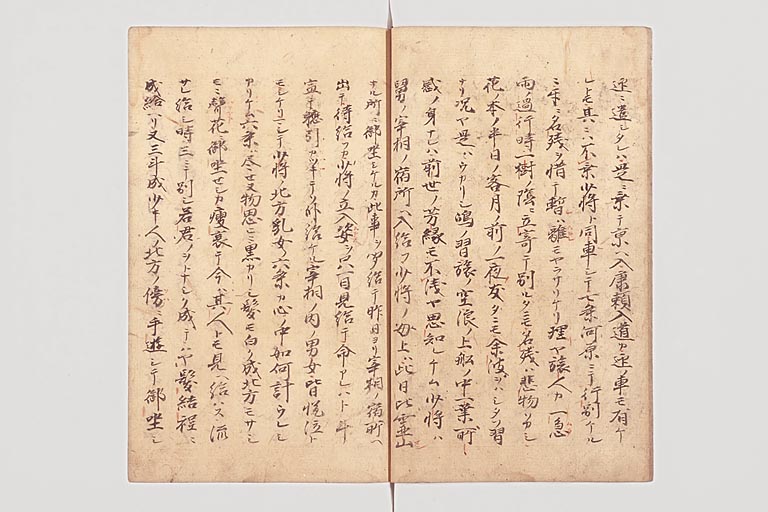 迎ニ遣シタレハ是ニ乗テ京ヘ入康頼入道カ迎ノ車モ有ケ
レトモ其ニハ不乗少将ト同車シテ七条河原ニテ行別ケル
ミ名残ヲ惜テ暫ハ離モヤラサリケリ理ヤ旅人カ一急
雨ノ過行時一樹ノ陰ニ立寄テ別ルタニモ名残ハ悲物ソカシ
花ノ本ノ半日ノ客月ノ前ノ一夜友タニモ余波ヲハシタフ習
ナリ況ヤ是ハウカリシ嶋ノ習旅ノ空浪ノ上船ノ中一業所
感ノ身ナレハ前世ノ芳縁モ不浅ヤ思知レケム少将ハ
舅ノ宰相ノ宿所ヘ入給フ少将ノ母上ハ此日比霊山
ナル所ニ御坐シケルカ此事ヲ聞給テ昨日ヨリ宰相ノ宿所ヘ
出テ待給フカ少将ノ立入姿ヲ只一目見給テ命アレハト斗
宣テ引カツキテソ臥給ケル宰相ノ内ノ男女皆悦泣ト
モシケリマシテ少将ノ北方乳女ノ六条カ心ノ中如何計ウレシ
カリケム六条ハ尽セヌ物思ヒニ黒カリシ髪モ白ク成北方モサシ
モニ声花ニ御坐セシカ痩衰テ今ハ其人トモ見ヘ給ハス流
サレ給シ時三ニテ別シ若君ノヲトナシク成テハヤ髪結程ニ
成給ヘリ又三斗成少キ人ノ北方ノ傍ニ手遊シテ御坐シ